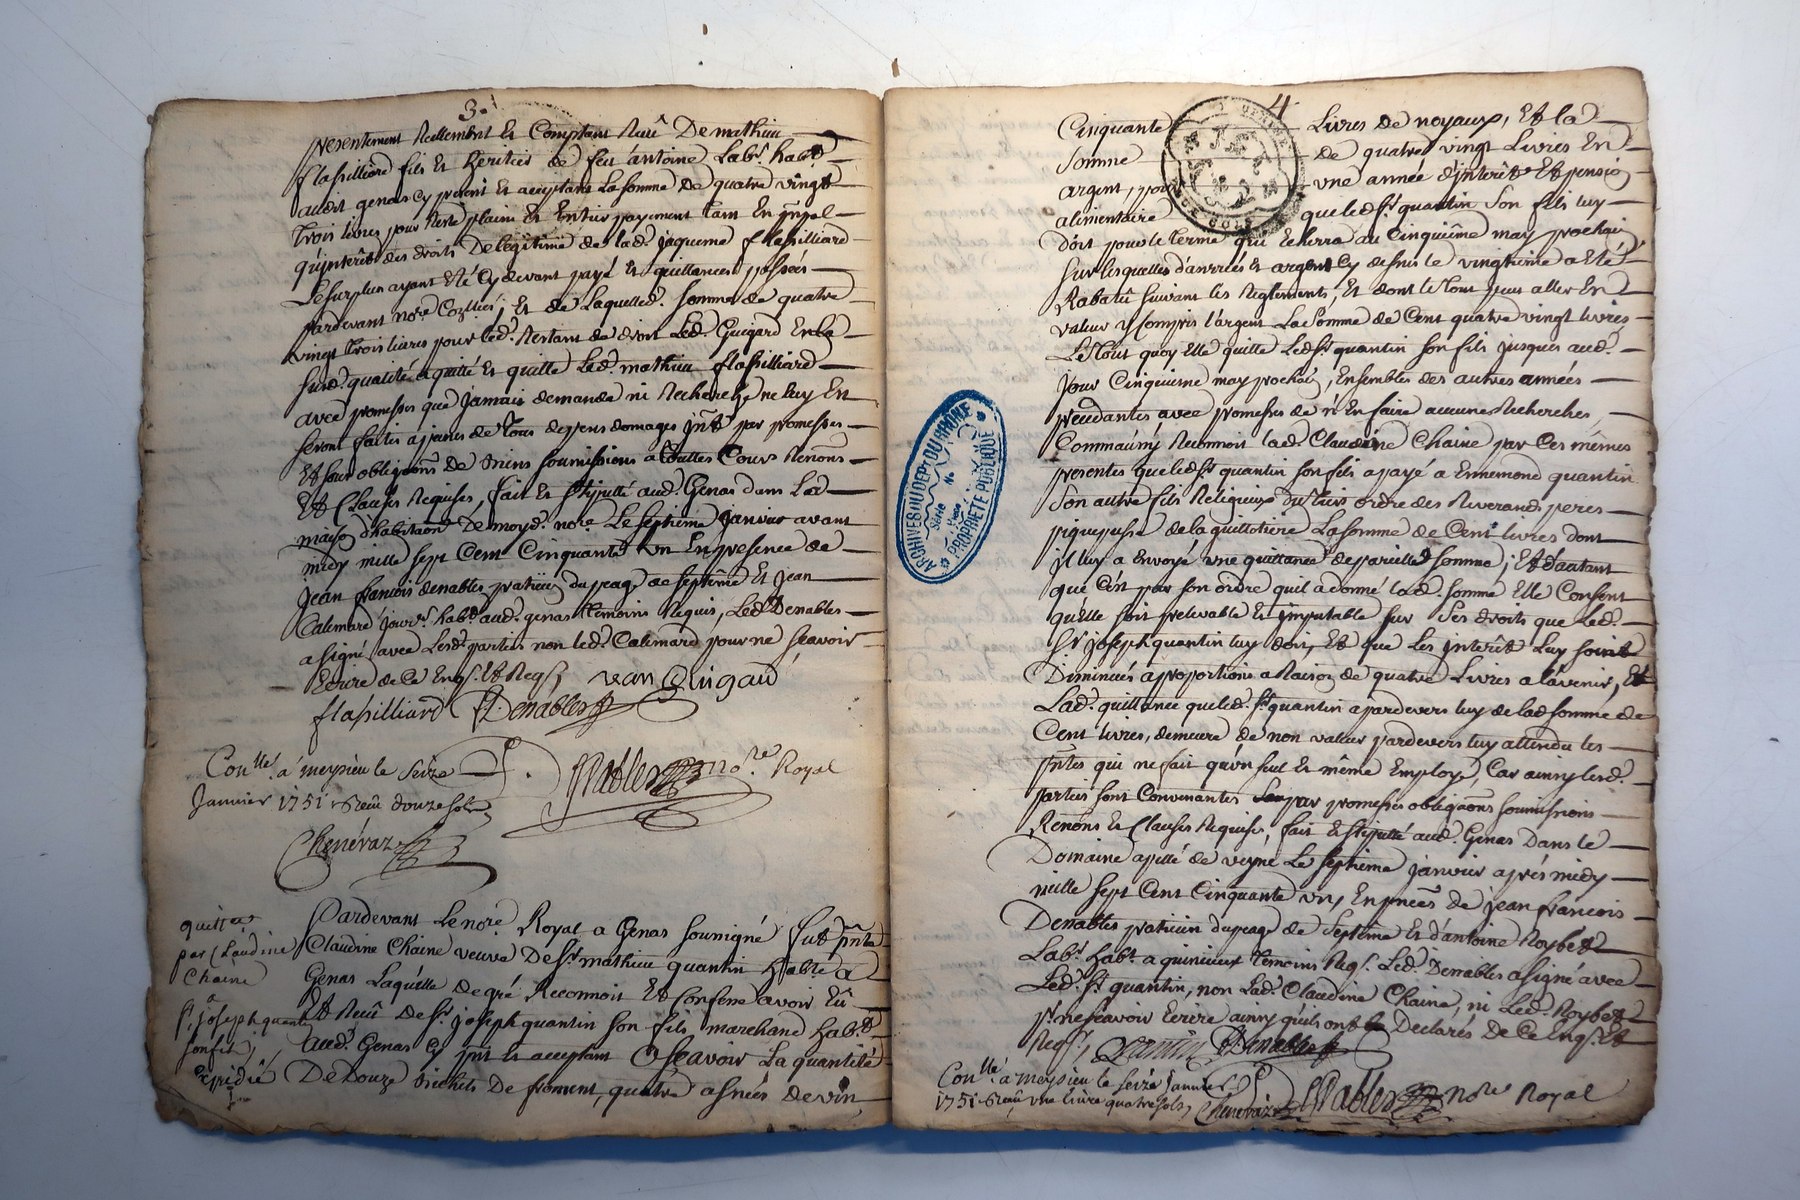 3.
presentement Reellement Et Comptant Reçû De mathieu
flassilliard fils Et heritier de feu antoine Lab.r hab.t
audit genas Cy present Et acceptant La Somme De quatre vingt
trois livres pour Reste plain Et Entier payement tant En prpal
qu'jnterêt des droits De legitime de lad.e jaqueme flassilliard
Le surplus ayant Eté Cy devant payé Et quittances passées
pardevant no.re ; Et de Laquelle d. Somme de quatre
vingt trois livres pour led. Restant de droit Led. Guigard En la
susd. qualité a quitté Et quitte Led. mathieu flassilliard
avec promesses que jamais demande ni Recherche ne luy En
Seront faites a peines de tous depens domages jnt par promesses
Et sous obligaõns De biens soumissions a touttes Cours Renons
Et Clauses Requises, fait Et Stipullé aud. Genas dans Lad.
maison d'habitaõn De moyd. no.re Le Septieme janvier avant
midy mille Sept Cent Cinquante un En presence de
jean francois denables praticien du peage de Septême Et jean
Calemard jour.r hab.t aud. genas temoins Requis, Led. Denables
a signé avec Lesd. parties non led. Calemard pour ne Scavoir
Ecrire de Ce Enq. Et Req.
flassilliard Denables
Con.llé a meysieu le Seize
Janvier 1751 Reçû douze sols
Denables no.re Royal
Chenévaz
quitt.ce
par Claudine
Chaine
a
S.r joseph quantin
son fils
Expédié
Pardevant Le no.re Royal a Genas Soussigné fut pñte
Claudine Chaine veuve De S.r mathieu quantin hab.te a
Genas Laquelle de gré Reconnoit Et Confesse avoir Eû
Et Reçû de S.r joseph quantin Son fils marchand hab.t
aud. Genas Cy pñt Et acceptant Scavoir La quantité
De Douze bichets De froment, quatre asnées de vin
4
Cinquante Livres de noyaux, Et la
Somme de quatre vingt Livres En
argent, pour une année d'jnterêts Et pension
alimentaire que led. S.r quantin Son fils luy
doit pour le terme qui Echerra au Cinquième may prochain
Sur lesquelles danrées Et argent Cy dessus le vingtieme a Eté
Rabatû Suivant les Reglements, Et dont le tout peut aller En
valeur y Compris l'argent La Somme de Cent quatre vingt livres
Le tout quoy Elle quitte Led. S.r quantin Son fils jusques aud.
jour Cinquieme may prochain, Ensembles des autres années
precedantes avec promesses de n'En faire aucunes Recherches,
Comm'aussy Reconnoit lad. Claudine Chaine par Ces mêmes
presentes que led. S.r quantin Son fils a payé a Ennemond quantin
Son autre fils Religieux du tiers ordre des Reverands peres
piquepusse de la guillotiere La Somme de Cent livres dont
jl luy a Envoyé une quittance de pareille Somme, Et d'autant
que C'est par Son ordre qu'il a donné lad. Somme Elle Consent
qu'Elle Soit prelevable Et jmputable Sur Ses droits que Led.
S.r joseph quantin luy doit, Et que Les jnterêts Luy Soint
Diminués a proportion a Raison de quatre Livres a l'avenir, Et
Lad. quittance que led. S.r quantin a pardevers luy de lad. Somme de
Cent livres, demeure de non valeur pardevers luy attendu les
pñtes qui ne fait qu'un Seul Et même Employé, Car ainsy lesd.
parties Sont Convenantes par promesses obligaõns Soumissions
Renons Et Clauses Requises, fait Et Stipullé aud. Genas Dans le
Domaine apellé de veyné Le Septieme janvier après midy
mille Sept Cent Cinquante un, En pñces de jean francois
Denables praticien du peage de Septême Et d'antoine Roybet
Lab.r hab.t a quinieux temoins Req. Led. Denables a signé avec
Led. S.r quantin, non Lad. Claudine Chaine, ni Led. Roybet
p.r ne Scavoir Ecrire ainsy qu'ils ont Declarés De Ce Enq. Et
Req. quantin Denables
Con.llé a meysieu le Seize Janvier
1751 Reçû une livre quatre sols, Chenévaz Denables no.re Royal
ARCHIVES DU DEPT DU RHONE
Série
No
Pièce
PROPRIETE PUBLIQUE